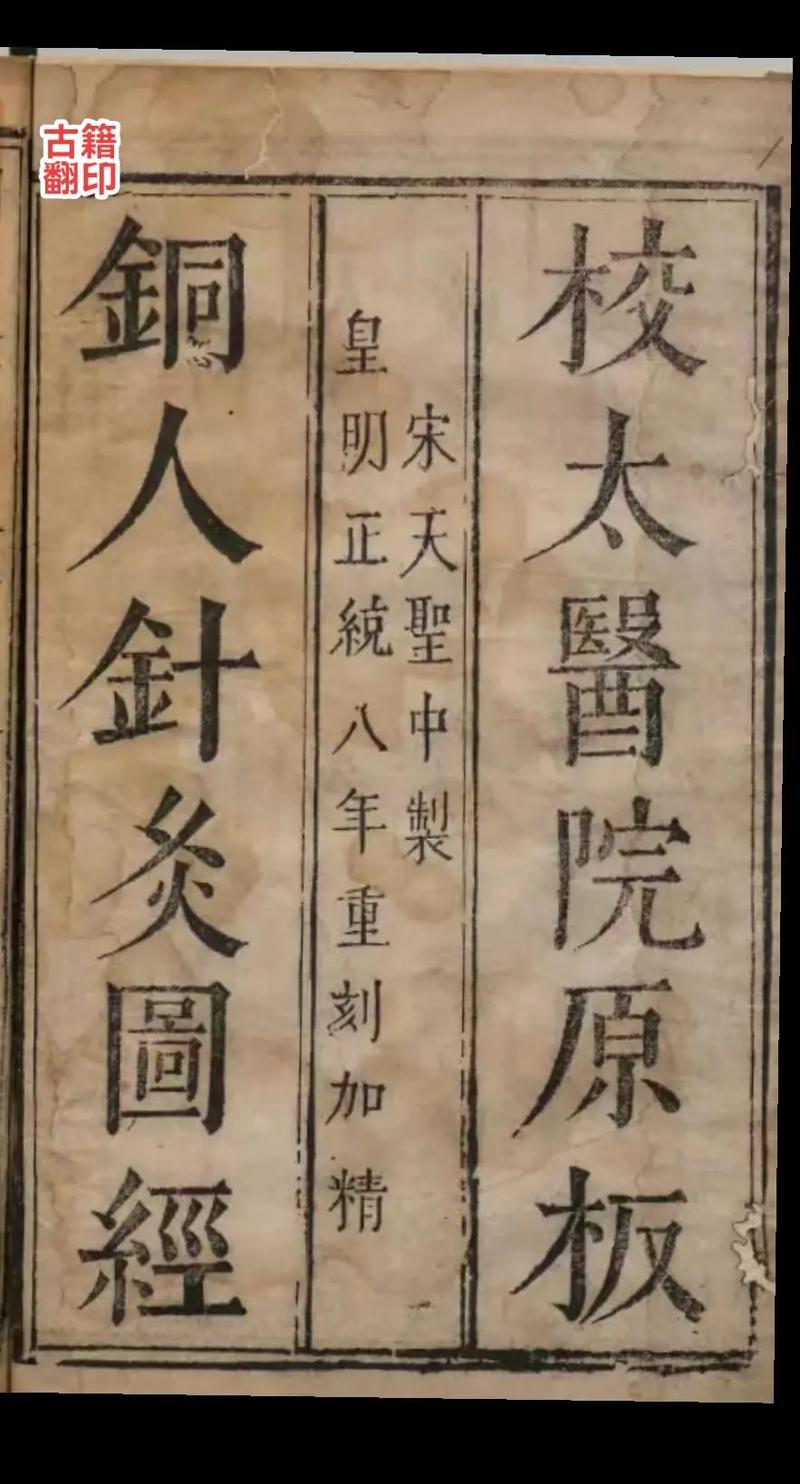 古籍
翻印
校太醫院原板
宋天聖中製
皇明正統八年重刻加精
銅人針灸圖經